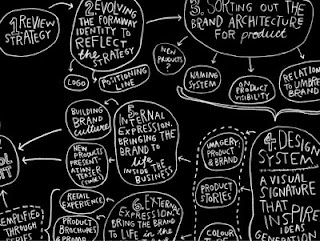 1. REVIEW
STRATEGY
2. EVOLVING
THE
IDENTITY TO
REFLECT
the STRATEGY
LOGO
POSITIONING
LINE
3. SORTING OUT THE
BRAND ARCHITECTURE
FOR product
NEW
PRODUCTS?
NAMING
SYSTEM
ON PRODUCT
VISIBILITY
RELATION
TO UMBRE
BRAND
BUILDING
BRAND
culture
NEW
PRODUCTS
PRESENT
5. INTERNAL
EXPRESSION.
BRINGING THE
BRAND TO
life
INSIDE THE
BUSINESS
IMAGERY
PRODUCT
& BRAND
PRODUCT
STORIES
COLOUR
4. DESIGN
SYSTEM
A VISUAL
SIGNATURE
THAT
INSPIRE
IDEAS
GENERAT
RETAIL
EXPERIENCE
PRODUCT
BROCHURES
& BRAND
6. EXTERNAL
EXPRESSION.
BRING THE BRAND
TO LIFE in the
THROUGH